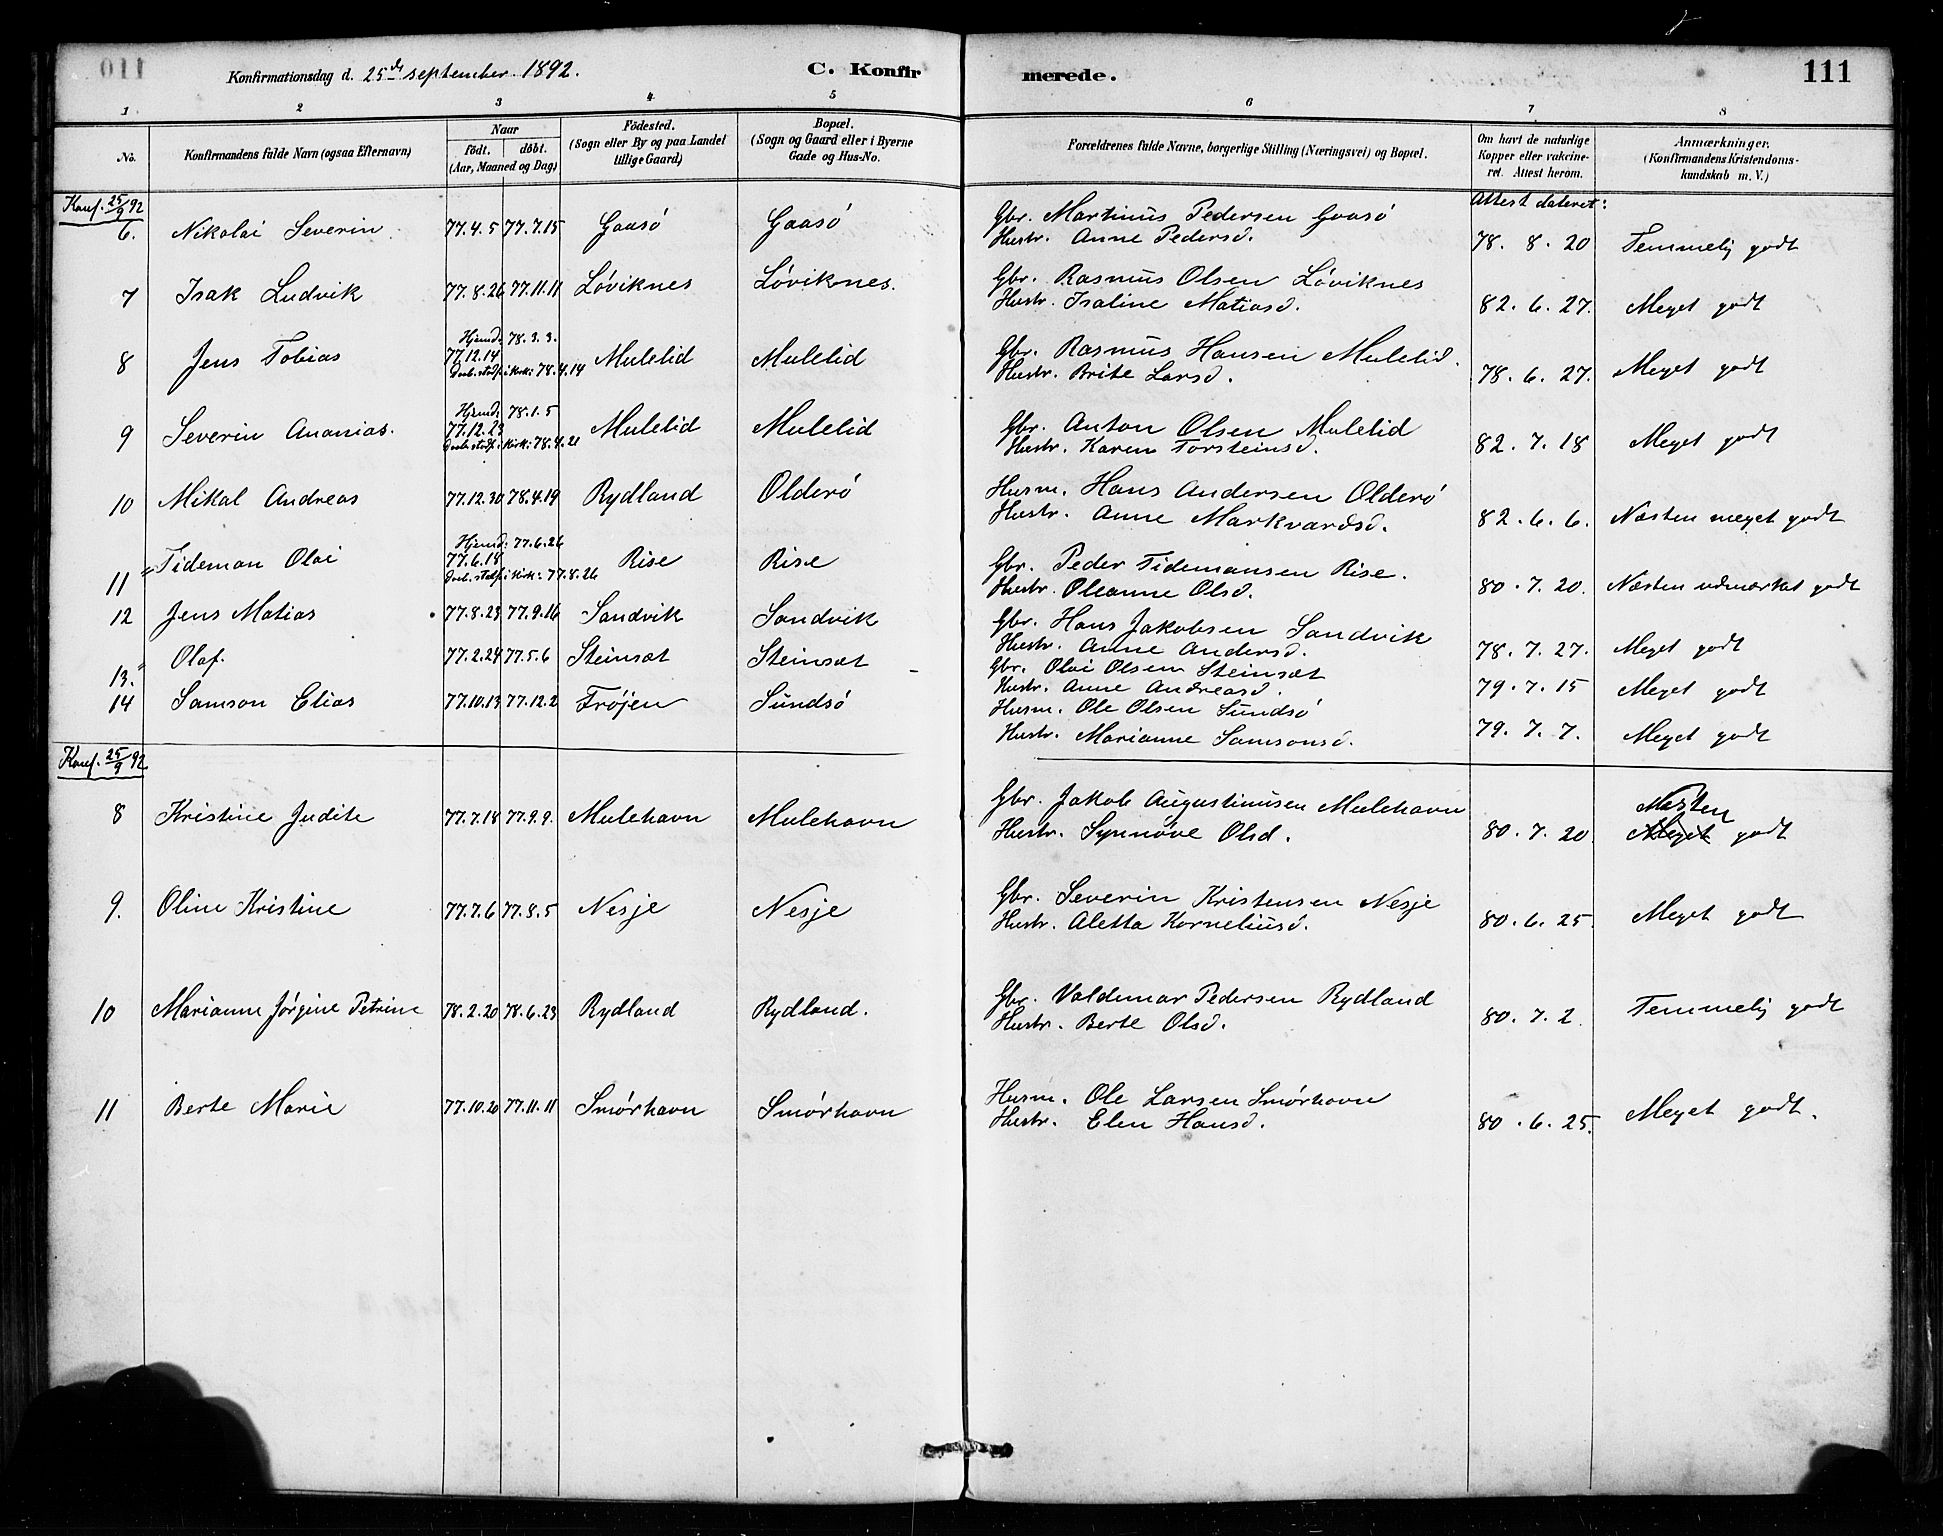 Konfirmationsdag d. 25de september 1892.
C. Konfirmerede.
111
1 2 3 4 5 6 7 8
No.
Konfirmandens fulde Navn (ogsaa Efternavn)
Naar
födt. döbt.
(Aar, Maaned og Dag)
Födested.
(Sogn eller By og paa Landet
tillige Gaard)
Bopæl.
(Sogn og Gaard eller i Byerne
Gade og Hus-No.
Forældrenes fulde Navne, borgerlige Stilling (Næringsvei) og Bopæl.
Om havt de naturlige
Kopper eller vakcine-
ret. Attest herom.
Anmærkninger.
(Konfirmandens Kristendoms-
kundskab m. V.)
Konf. 25/9 92
Attest dateret:
6. Nikolai Severin 77.4.5 77.7.15 Gaasö Gaasö Gbr. Martinus Pedersen Gaasö
Hustr. Anne Pedersd. 78. 8. 20 Temmelig godt
7 Isak Ludvik 77.8.26 77.11.11 Løviknes Løviknes. Gbr. Rasmus Olsen Løviknes
Hustr. Isaline Matiasd. 82. 6. 27. Meget godt
8 Jens Tobias 77.12.14 Hjemd: 78.3.3. Daab. stadf. i Kirk: 78.4.14 Mulelid Mulelid Gbr. Rasmus Hansen Mulelid.
Hustr. Brite Larsd. 78. 6. 27. Meget godt
9 Severin Ananias. 77.12.23 Hjemd: 78.1.5 Daab. stadf. i Kirk: 78.4.21 Mulelid Mulelid Gbr. Anton Olsen Mulelid
Hustr. Karen Torsteinsd. 82. 7. 18 Meget godt
10 Mikal Andreas 77.12.30 78.4.19 Rydland Olderö Husm. Hans Andersen Olderö
Hustr. Anne Markvardsd. 82. 6. 6. Næsten meget godt
11 Tideman Olai 77.6.18 Hjemd: 77.6.26 Daab. stadf. i Kirk: 77.8.26 Rise Rise Gbr. Peder Tidemansen Rise.
Hustr. Oleanne Olsd. 80. 7. 20. Næsten udmærket godt
12 Jens Matias 77.8.23 77.9.16 Sandvik Sandvik Gbr. Hans Jakobsen Sandvik
Hustr. Anne Andersd. 78. 7. 27. Meget godt
13. Olaf. 77.2.24 77.5.6 Steinsæt Steinsæt Gbr. Olai Olsen Steinsæt
Hustr. Anne Andreasd. 79. 7. 15 Meget godt
14 Samson Elias 77.10.13 77.12.2 Frøjen Sundsö Husm. Ole Olsen Sundsö
Hustr. Marianne Samsonsd. 79. 7. 7. Meget godt
Konf. 25/9 92
8 Kristine Judite 77.7.18 77.9.9. Mulehavn Mulehavn Gbr. Jakob Augustinusen Mulehavn
Hustr. Synnöve Olsd. 80. 7. 20 Næsten Meget godt
9. Oline Kristine 77.7.6 77.8.5 Nesje Nesje Gbr. Severin Kristensen Nesje
Hustr. Aletta Korneliusd. 80. 6. 25. Meget godt
10 Marianne Jørgine Petrine 78.2.20 78.6.23 Rydland Rydland. Gbr. Valdemar Pedersen Rydland
Hustr. Berte Olsd. 80. 7. 2. Temmelig godt
11 Berte Marie 77.10.20 77.11.11 Smørhavn Smørhavn Husm. Ole Larsen Smørhavn
Hustr. Elen Hansd. 80. 6. 25. Meget godt.